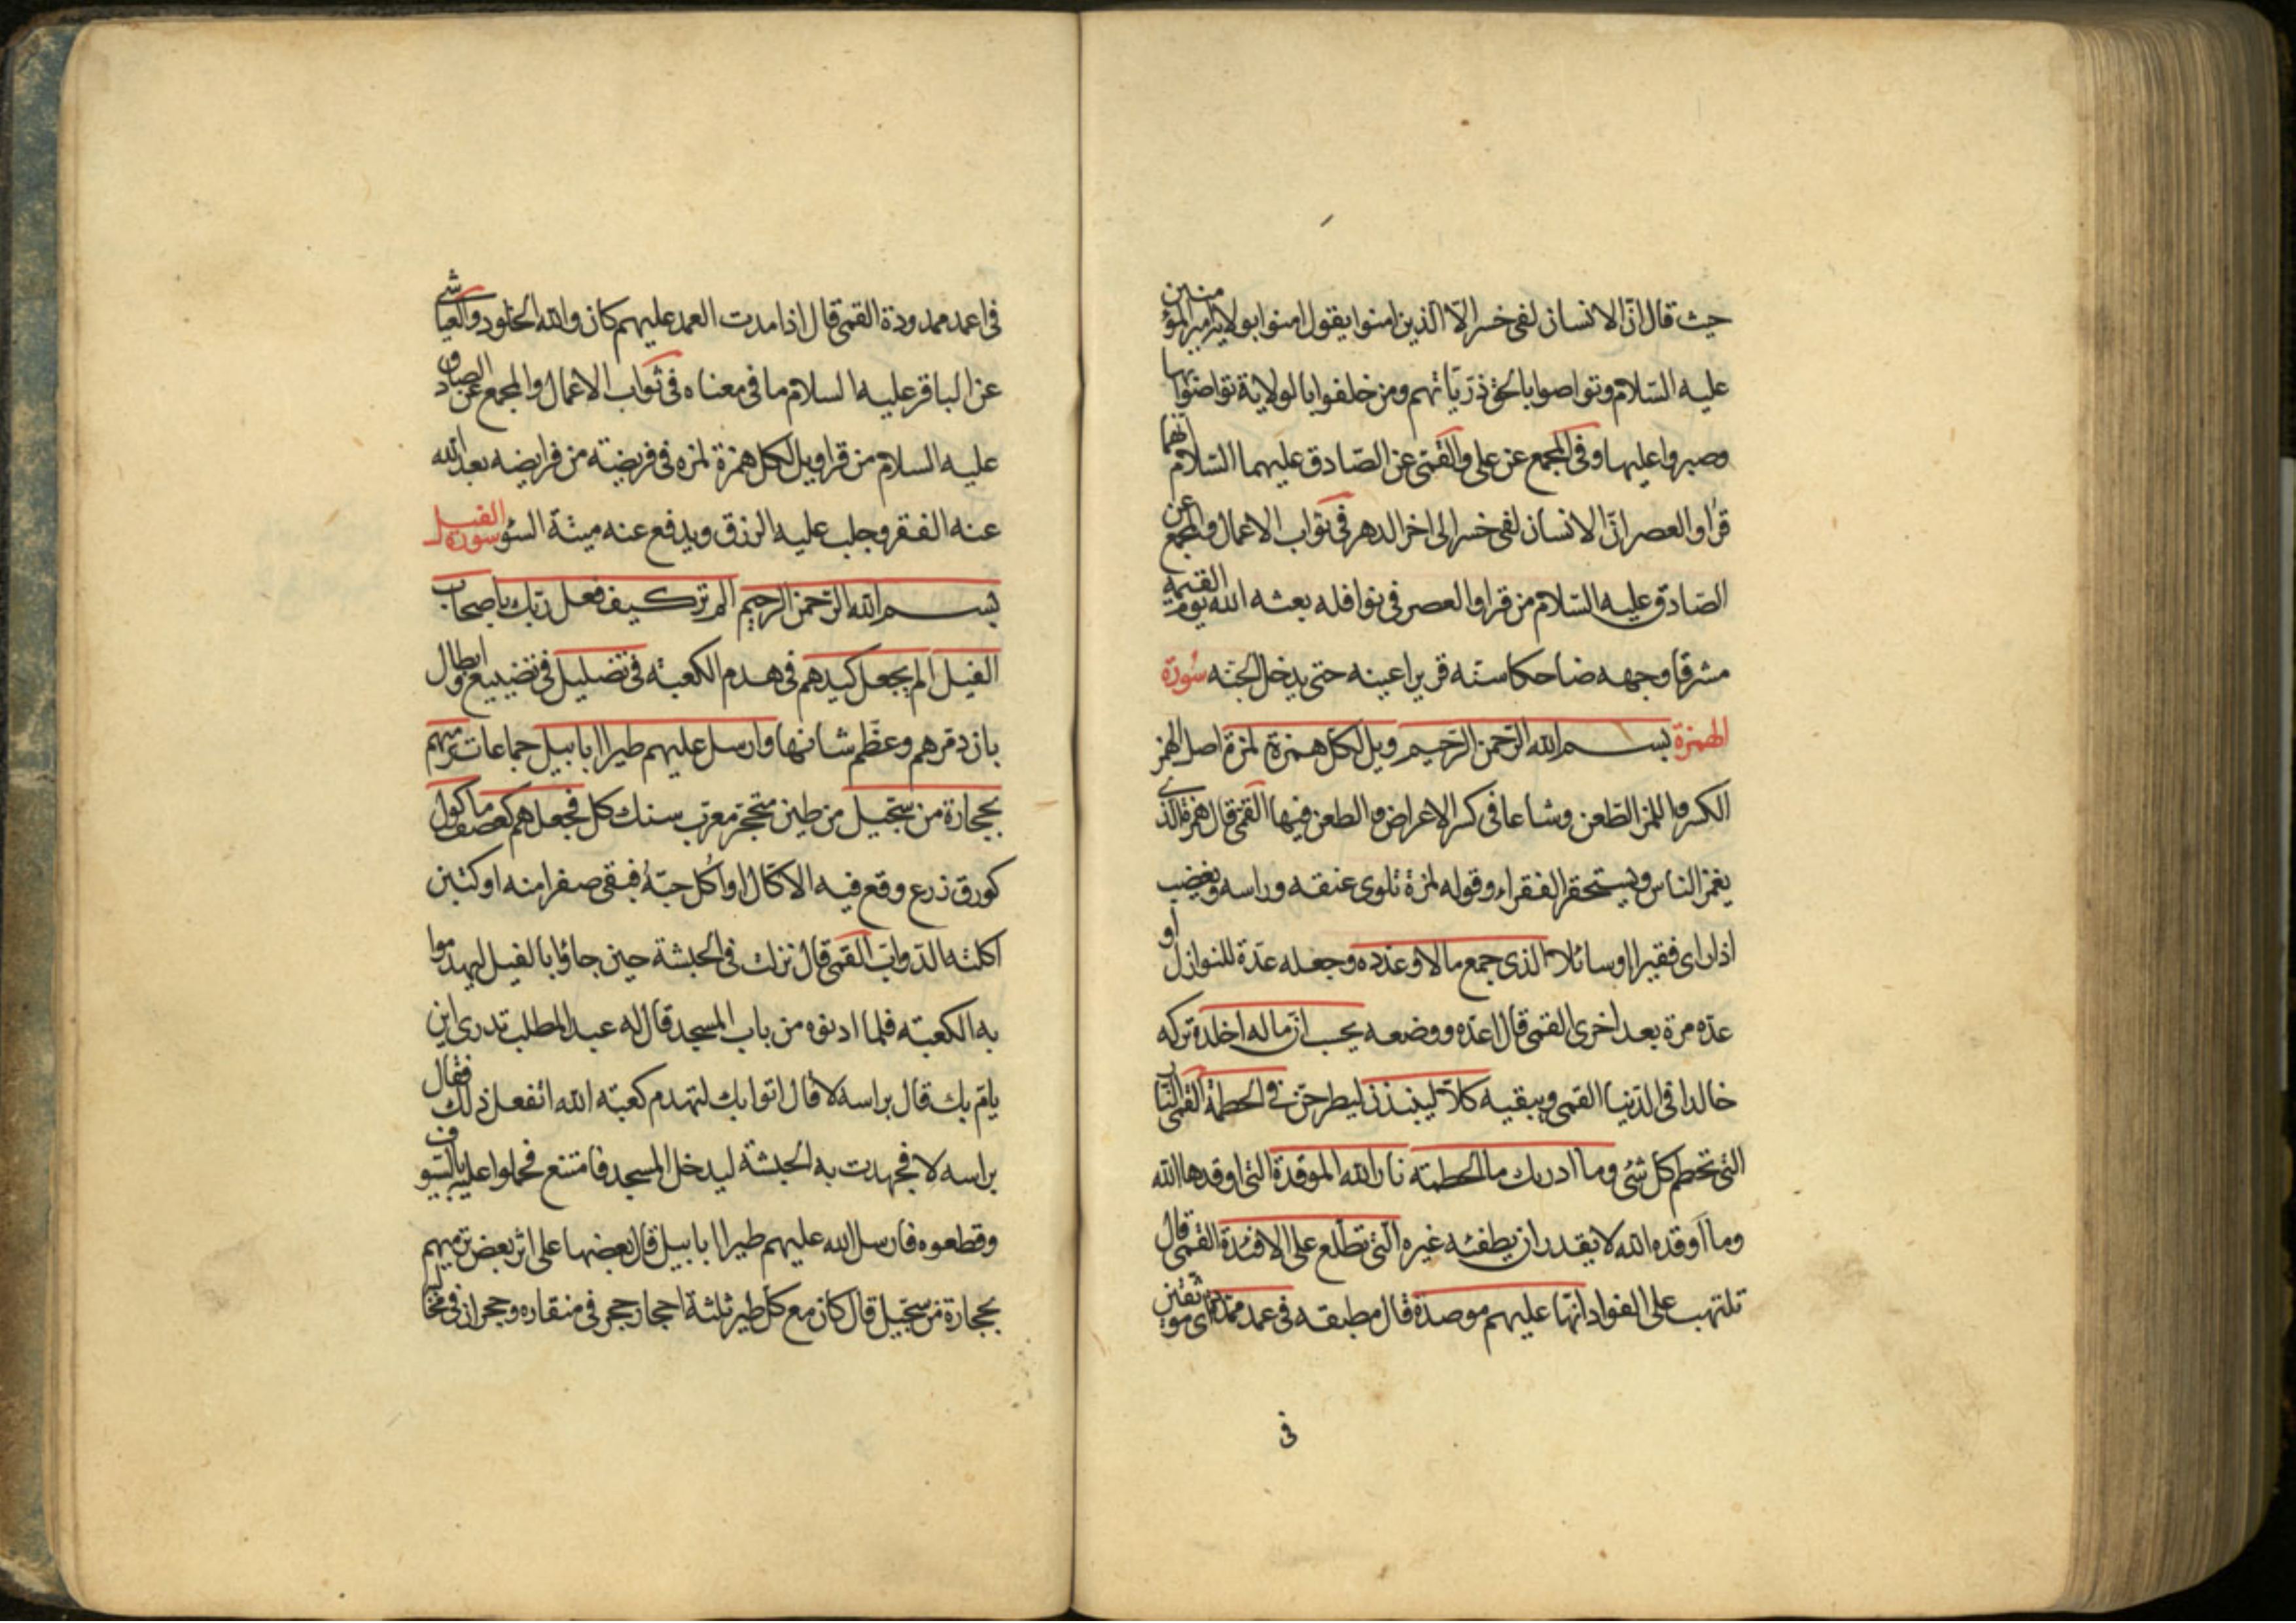 حيث قال انّ الانسان لفى خسر الّا الّذين امنوا يقول امنوا بولاية امير المؤمنين
عليه السّلام وتواصوا بالحق ذريّاتهم ومن خلفوا بالولاية تواصوا بها
وصبروا عليها وفى المجمع عن على والقمّى عن الصّادق عليهما السّلام انهما
قرٰا والعصر انّ الانسان لفى خسر الى اخر الدهر فى ثواب الاعمال والمجمع عن
الصّادق عليه السّلام من قرا والعصر فى نوافله بعثه الله يوم القيمه
مشرقا وجهه ضاحكا سنّه قريرا عينه حتى يدخل الجنّه سُورَة
الهمزة بسم الله الرّحمن الرّحيم ويل لكلّ همزة لمزة اصل الهمز
الكسر واللمز الطّعن وشاعا فى كسر الاعراض والطعن فيها القمّى قال همزة الّذى
يغمز الناس ويستحقر الفقراء وقوله لمزة يلوى عنقه وراسه ويغضب
اذا راى فقيرا او سائلا الذى جمع مالا وعدّده وجعله عدّة للنوازل او
عدّه مرّة بعد اخرى القمى قال اعدّه ووضعه يحسب انّ ماله اخلده تركه
خالدا فى الدّنيا القمى ويبقيه كلّا لينبذنّ ليطرحنّ فى الحطمة القمّى النّار
التى تحطم كلّ شئ وما ادريك ما الحطمة نار الله الموقدة التى اوقدها الله
وما اوقده الله لا يقدر ان يطفئه غيره الّتى تطّلع على الافئدة القمّى قال
تلتهب على الفواد انّها عليهم موصدة قال مطبقه فى عمد ممدّدة اى موثقين
فى
فى اعمد ممدودة القمّى قال اذا مدت العمد عليهم كان والله الخلود والعياشى
عن الباقر عليه السلام ما فى معناه فى ثواب الاعمال والمجمع عن الصادق
عليه السلام من قرا ويل لكل همزة لمزه فى فريضة من فرايضه بعد الله
عنه الفقر وجلب عليه الرزق ويدفع عنه ميتة السّوء سورة الفيل
بسم الله الرّحمن الرحيم الم تر كيف فعل ربّك باصحاب
الفيل الم يجعل كيدهم فى هدم الكعبة فى تضليل فى تضييع وابطال
بان دمّرهم وعظّم شانها وارسل عليهم طيرا ابابيل جماعات ترميهم
بحجارة من سجّيل من طين متحجّر معرّب سنك كل فجعلهم كعصف ماكول
كورق زرع وقع فيه الاكال او اُكل حبّهُ فبقى صفرا منه او كتبن
اكلته الدّوابّ القمّى قال نزلت فى الحبشة حين جاؤا بالفيل ليهدموا
به الكعبة فلما ادنوه من باب المسجد قال له عبد المطلب تدرى اين
يامّ بك قال براسه لا قال اتوا بك لتهدم كعبة الله اتفعل ذلك فقال
براسه لا فجهدت به الحبشة ليدخل المسجد فامتنع فحملوا عليه بالسّيوف
وقطعوه فارسل الله عليهم طيرا ابابيل قال بعضها على اثر بعض ترميهم
بحجارة من سجّيل قال كان مع كلّ طير ثلثة احجار حجر فى منقاره وحجران فى مخا